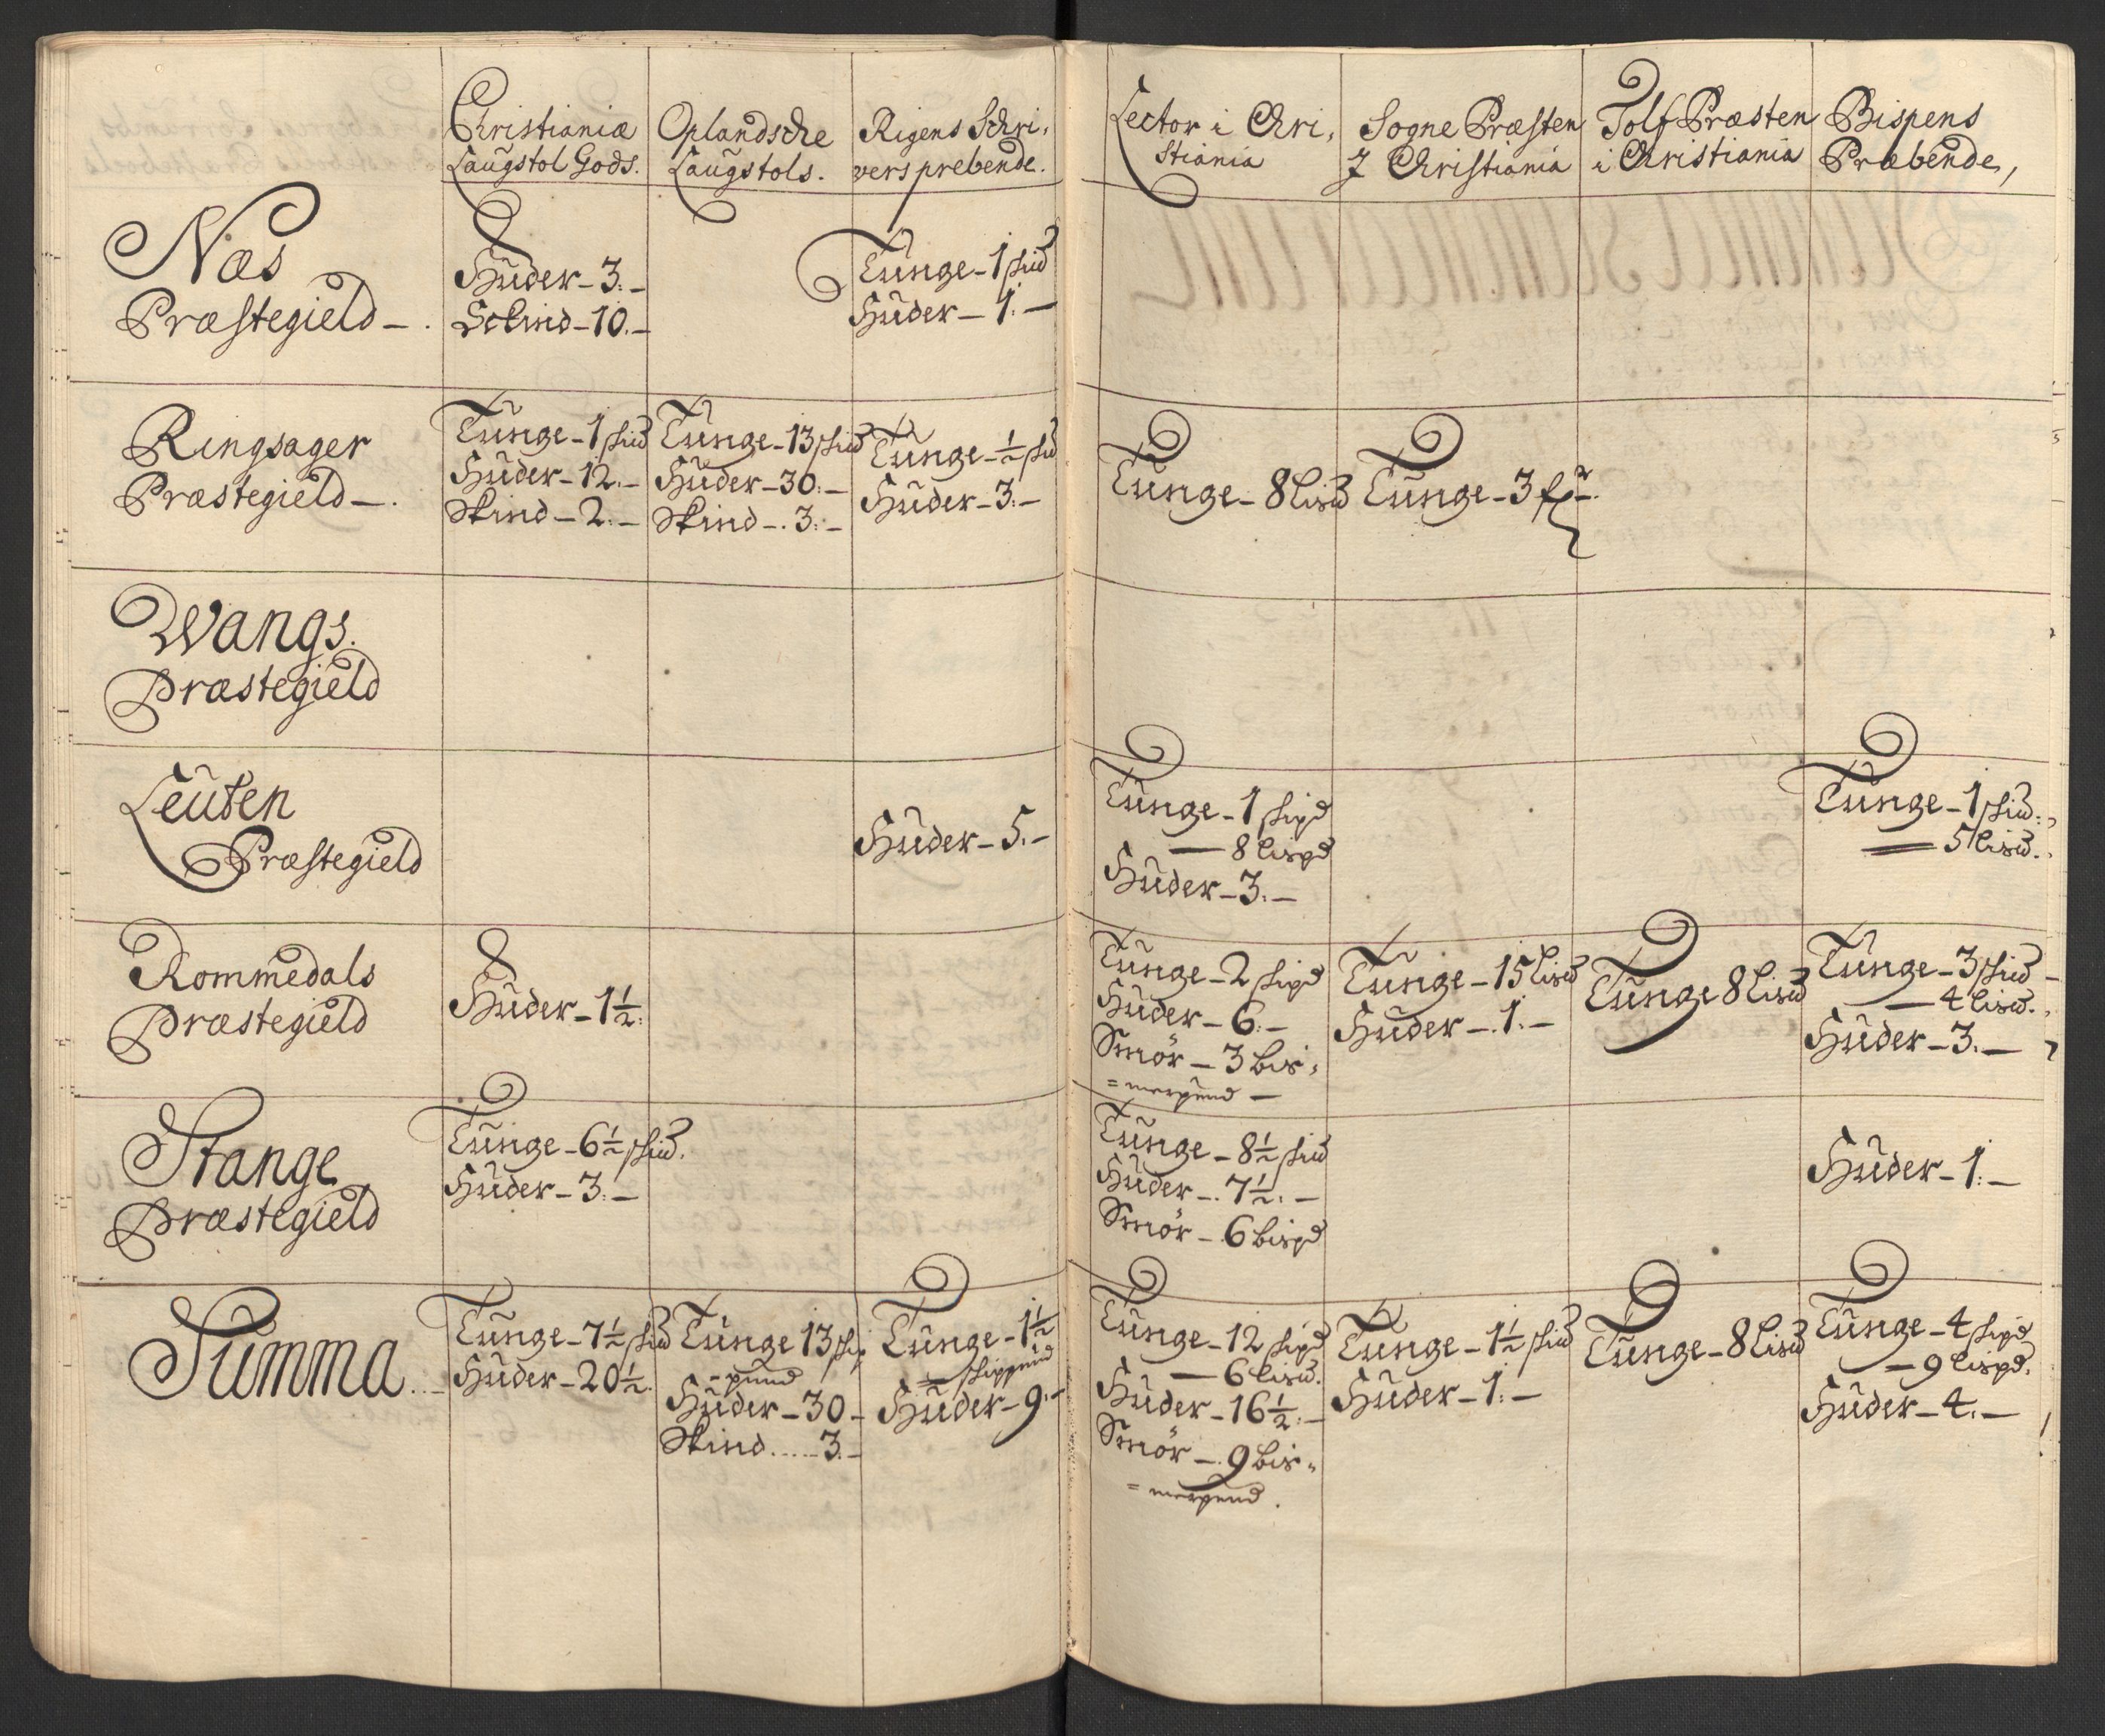 Christianiæ
Laugstol Gods.
Oplandsche
Laugstols.
Rigens Schri,
vers prebende.
Lector i Chri,
stiania
Sogne Præsten
J Christiania
Tolf Præsten
i Christiania
Bispens
Præbende,
Næs
Præstegield
Huder - 3. -
Schind - 10. -
Tunge - 1 skud
Huder - 1. -
Ringsager
Præstegield -.
Tunge - 1 skud
Huder - 12. -
Skind - 2. -
Tunge - 13 skud
Huder - 30. -
Skind - 3. -
Tunge - ½ skud
Huder - 3. -
Tunge - 8 Lisud
Tunge - 3
Wangs.
Præstegield
Leuten
Præstegield
Huder - 5. -
Tunge - 1 skipd
- 8 Lispd
Huder - 3. -
Tunge - 1 skud.
- 5 Lisud.
Rommedals
Præstegield
Huder - 1½.
Tunge - 2 skipd
Huder - 6. -
Smör - 3 bis,
=merpund -
Tunge - 15 Lisud
Huder - 1. -
Tunge 8 Lisud
Tunge - 3 skud -
- 4 Lisud.
Huder - 3. -
Stange
Præstegield
Tunge - 6½ skud.
Huder - 3. -
Tunge - 8½ skud
Huder - 7½. -
Smör - 6 bispd
Huder - 1. -
Summa
Tunge - 7½ skud
Huder - 20½.
Tunge 13 skip
-pund
Huder - 30 -
Skind ..... 3. -
Tunge - 1½
skippund
Huder - 9. -
Tunge - 12 skipd
- 6 Lisud.
Huder - 16½. -
Smör - 9 bis,
=merpund.
Tunge - 1½ skud
Huder - 1. -
Tunge - 8 Lisud
Tunge - 4 skipd
- 9 Lispd.
Huder - 4. -